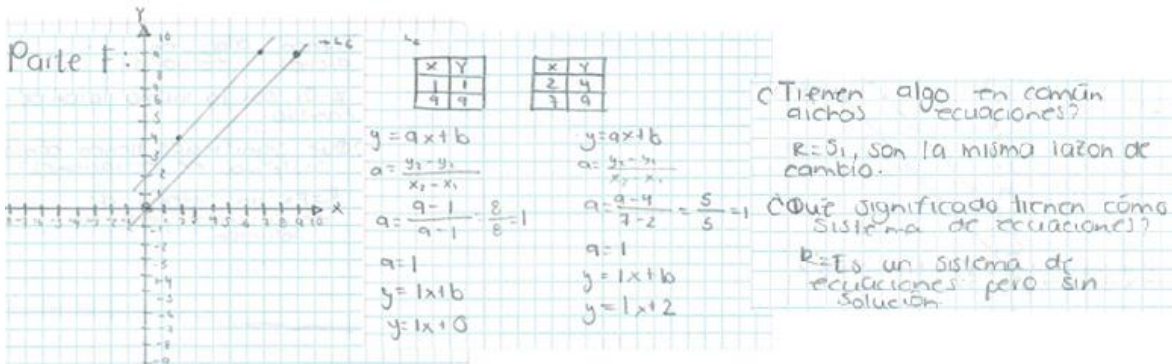 Parte F:
Y
X
L6
x y
1 1
9 9
y=ax+b
a=y2-y1/x2-x1
a=9-1/9-1=8/8=1
a=1
y=1x+b
y=1x+0
x y
2 4
7 9
y=ax+b
a=y2-y1/x2-x1
a=9-4/7-2=5/5=1
a=1
y=1x+b
y=1x+2
¿Tienen algo en común
dichas ecuaciones?
R=Si, son la misma razon de
cambio.
¿Qué significado tienen cómo
sistema de ecuaciones?
R=Es un sistema de
ecuaciones pero sin
solución.